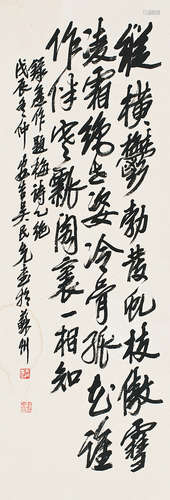 縱橫鬱勃發虬枝傲雪
凌霜絕世姿冷骨孤花誰
作伴寒瓢閣裏一相知
錄舊作題梅詩之絕
戊辰冬仲安吉吳民先書於蘇州